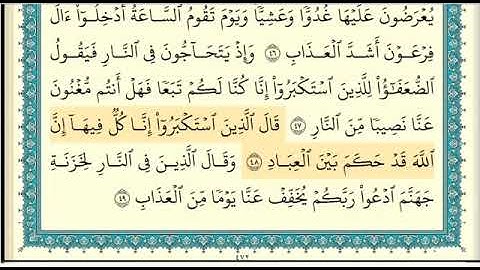 يُعْرَضُونَ عَلَيْهَا غُدُوًّا وَعَشِيًّا وَيَوْمَ تَقُومُ ٱلسَّاعَةُ أَدْخِلُوٓا۟ ءَالَ
فِرْعَوْنَ أَشَدَّ ٱلْعَذَابِ ٤٦ وَإِذْ يَتَحَآجُّونَ فِى ٱلنَّارِ فَيَقُولُ
ٱلضُّعَفَـٰٓؤُا۟ لِلَّذِينَ ٱسْتَكْبَرُوٓا۟ إِنَّا كُنَّا لَكُمْ تَبَعًا فَهَلْ أَنتُم مُّغْنُونَ
عَنَّا نَصِيبًا مِّنَ ٱلنَّارِ ٤٧ قَالَ ٱلَّذِينَ ٱسْتَكْبَرُوٓا۟ إِنَّا كُلٌّ فِيهَآ إِنَّ
ٱللَّهَ قَدْ حَكَمَ بَيْنَ ٱلْعِبَادِ ٤٨ وَقَالَ ٱلَّذِينَ فِى ٱلنَّارِ لِخَزَنَةِ
جَهَنَّمَ ٱدْعُوا۟ رَبَّكُمْ يُخَفِّفْ عَنَّا يَوْمًا مِّنَ ٱلْعَذَابِ ٤٩
٤٧٢